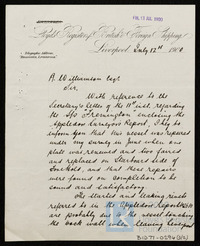 Lloyd's Register of British & Foreign Shipping,
Liverpool, July 12th 1901
Telegraphic Address,
A. Williamson Esqr
Sir
With reference to the
Secretary's letter of the 11th inst. regarding
the S/s "Fremington" enclosing the
Appledore Surveyors Report, I beg to
inform you that this vessel was repaired
under my survey in June when one
plate was renewed and two faired
and replaced on Starboard side of
and that these repairs
were found on completion to be
sound and satisfactory
The started and leaking rivets
referred to in the Appledore Report
are probably due to the vessel touching
the back wall when leaving Liverpool